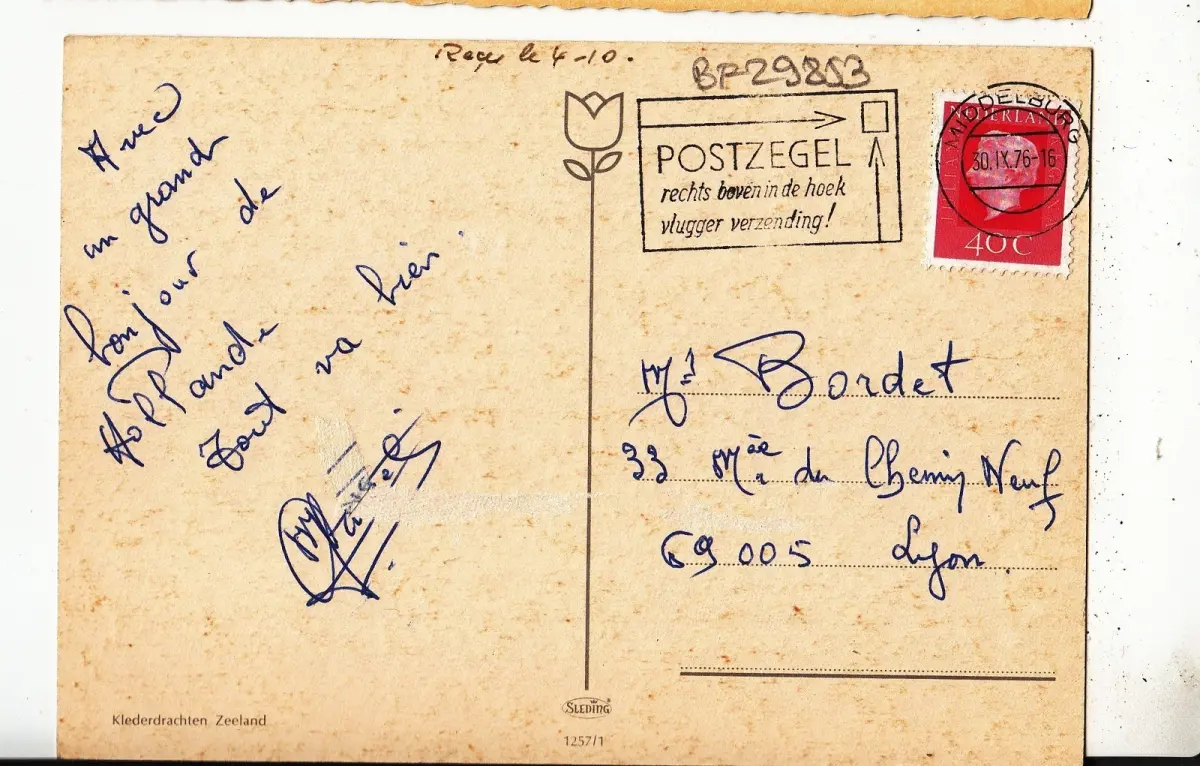 Reçu le 4-10.
BF29853
Avec
un grand
bonjour de
Hollande
Tout va bien.
POSTZEGEL
rechts boven in de hoek
vlugger verzending!
MIDDELBURG
30.IX.76-16
NEDERLAND
40C
Bordet
33 Mée du Chemin Neuf
69005 Lyon.
Klederdrachten Zeeland
SLEDING
1257/1